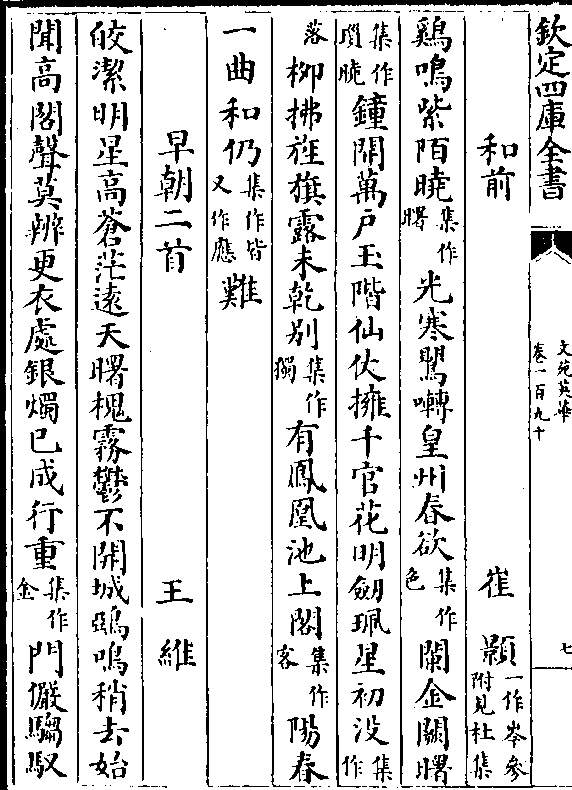 欽定四庫全書
文苑英華
卷一百九十
七
和前 崔顥一作岑參附見杜集
鷄鳴紫陌曉集作曙光寒鸎囀皇州春欲集作色闌金闕曙
集作瑣曉鐘開萬戶玉階仙仗擁千官花明劒珮星初没集作
落栁拂旌旗露未乾别集作獨有鳳凰池上閣集作客陽春
一曲和仍集作皆又作應難
早朝二首 王維
皎潔明星高蒼茫逺天曙槐霧鬱不開城鵶鳴稍去始
聞高閣聲莫辨更衣處銀燭已成行重集作金門儼騶馭